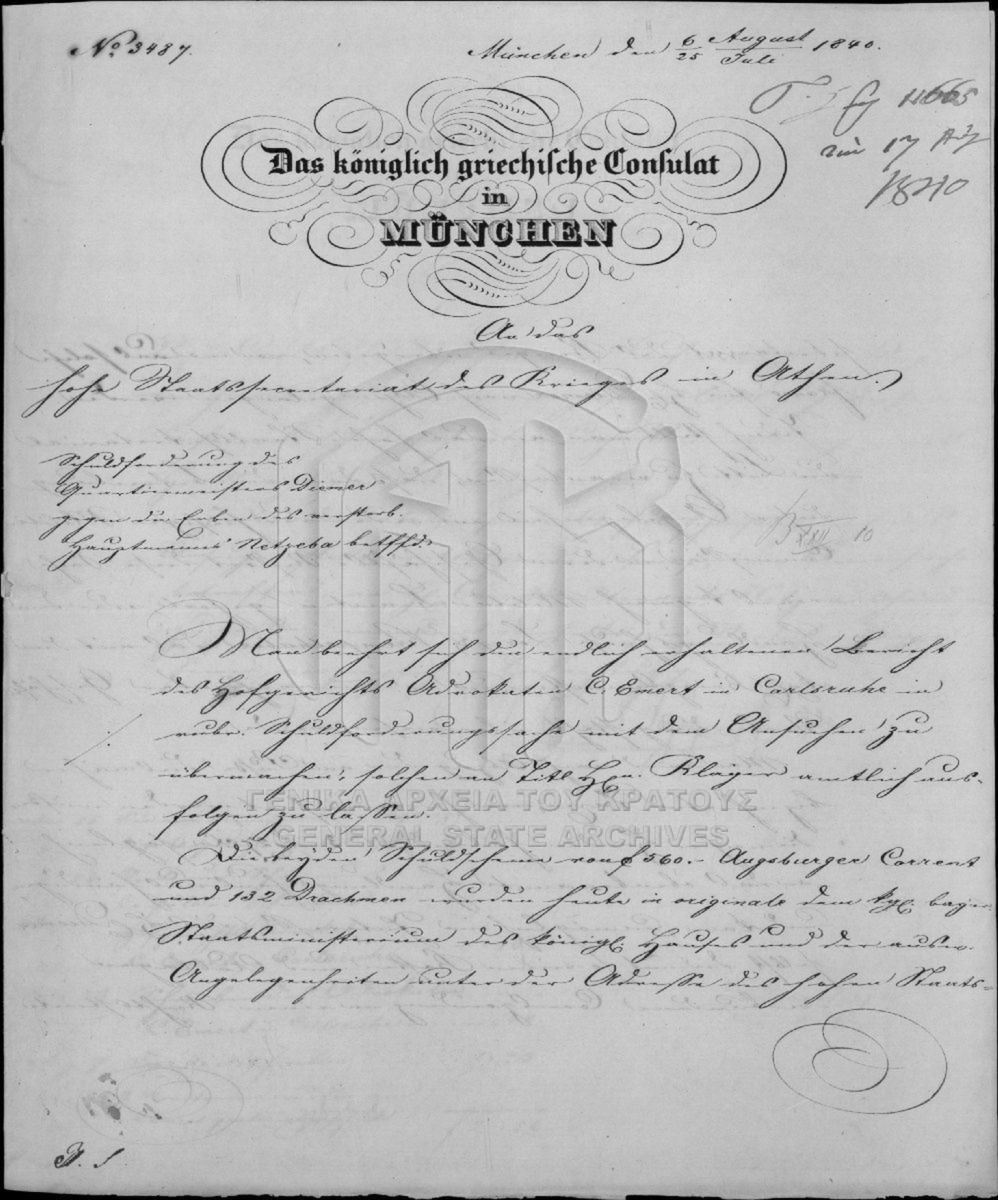 No 3487.
München den 6/25 August/Juli 1840.
11665
17
1840
Das königlich griechische Consulat
in
MÜNCHEN
An das
hohe Staatssecretariat des Krieges in Athen.
Schuldforderung des
Quartiermeisters Diemer
gegen die Erben des verstorb.
Hauptmanns Netzeba betffd.
B XXII 10
Man beehrt sich den endlich erhaltenen Bericht
des Hofgerichts Advokaten C. Emert in Carlsruhe in
rubr. Schuldforderungssache mit dem Ansuchen zu
übermachen, solchen an Titl Hrn. Kläger amtlich aus-
folgen zu lassen.
ΓΕΝΙΚΑ ΑΡΧΕΙΑ ΤΟΥ ΚΡΑΤΟΥΣ
GENERAL STATE ARCHIVES
Die beyden Schuldscheine von f 560.- Augsburger Corrent
und 132 Drachmen wurden heute in originale dem kgl. bayer.
Staatsministerium des königl. Hauses und der ausw.
Angelegenheiten unter der Adresse des hohen Staats-